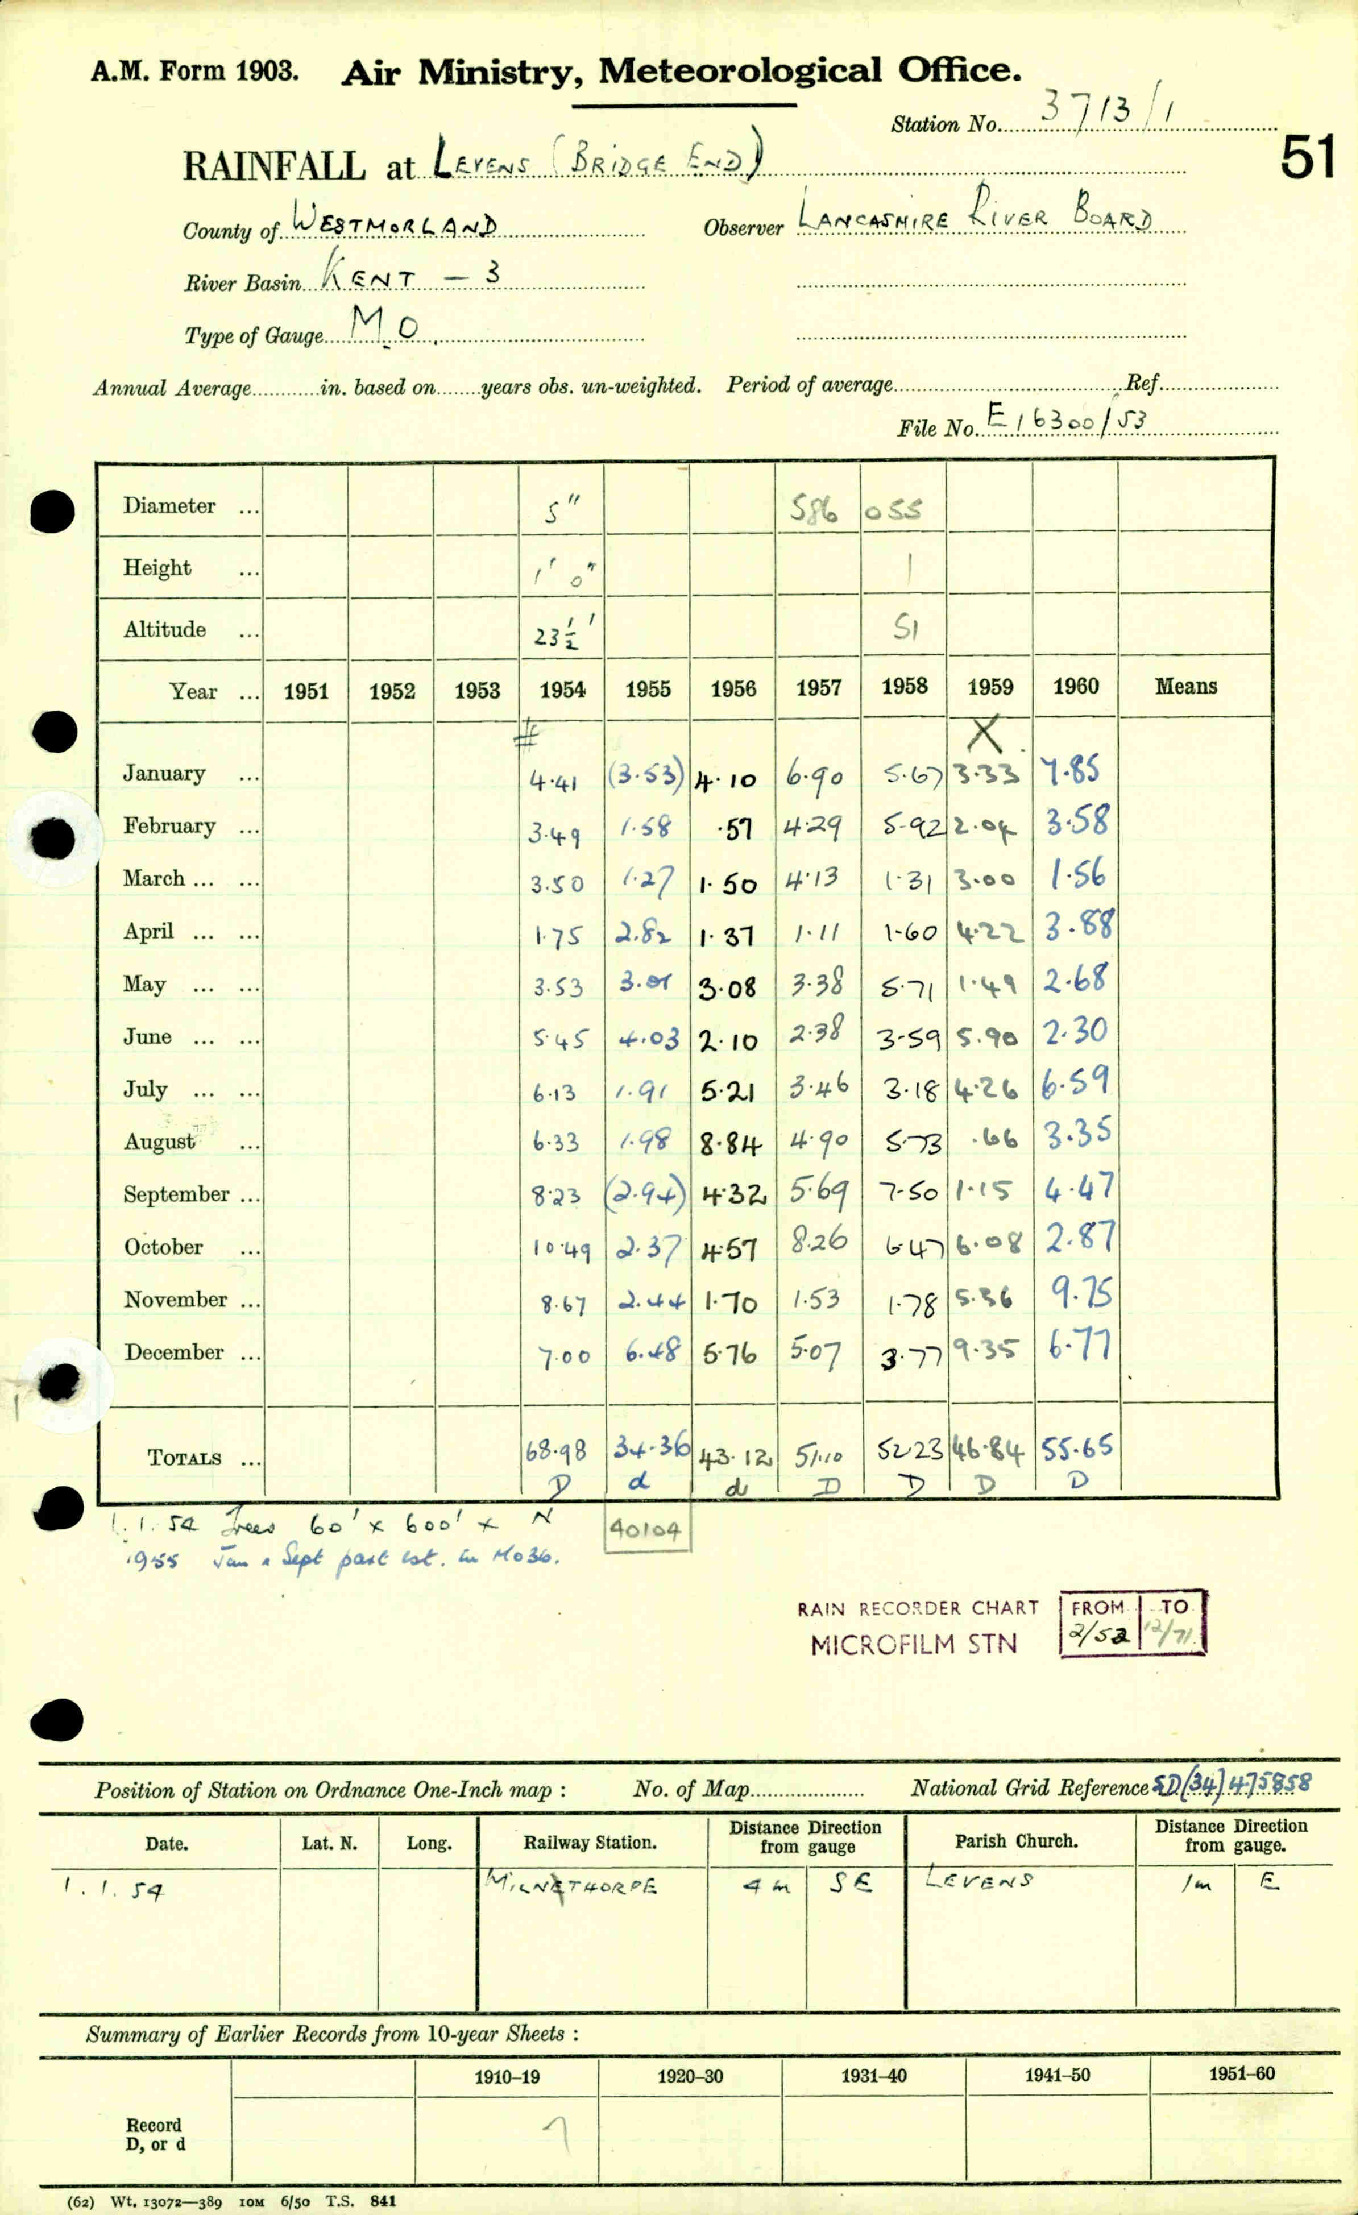 A.M. Form 1903. Air Ministry, Meteorological Office.
Station No. 3713/1
51
RAINFALL at LEVENS (BRIDGE END)
County of WESTMORLAND Observer LANCASHIRE RIVER BOARD
River Basin KENT - 3
Type of Gauge M.O.
Annual Average in. based on years obs. un-weighted. Period of average Ref.
File No. E16300/53
Diameter ... 5" 586 055
Height ... 1' 0" 1
Altitude ... 23½' 51
Year ... 1951 1952 1953 1954 1955 1956 1957 1958 1959 1960 Means
# X
January ... 4.41 (3.53) 4.10 6.90 5.67 3.33 7.85
February ... 3.49 1.58 .57 4.29 5.92 2.04 3.58
March ... ... 3.50 1.27 1.50 4.13 1.31 3.00 1.56
April ... ... 1.75 2.82 1.37 1.11 1.60 4.22 3.88
May ... ... 3.53 3.01 3.08 3.38 5.71 1.49 2.68
June ... ... 5.45 4.03 2.10 2.38 3.59 5.90 2.30
July ... ... 6.13 1.91 5.21 3.46 3.18 4.26 6.59
August ... 6.33 1.98 8.84 4.90 5.73 .66 3.35
September ... 8.23 (2.94) 4.32 5.69 7.50 1.15 4.47
October ... 10.49 2.37 4.57 8.26 6.47 6.08 2.87
November ... 8.67 2.44 1.70 1.53 1.78 5.36 9.75
December ... 7.00 6.48 5.76 5.07 3.77 9.35 6.77
TOTALS ... 68.98 34.36 43.12 51.10 52.23 46.84 55.65
D d d D D D D
1.1.54 Trees 60' x 600' x N 40104
1955 Jan & Sept part est. in MO36.
RAIN RECORDER CHART FROM TO
MICROFILM STN 2/52 12/71
Position of Station on Ordnance One-Inch map : No. of Map National Grid Reference SD(34) 475858
Date. Lat. N. Long. Railway Station. Distance Direction from gauge Parish Church. Distance Direction from gauge.
1.1.54 MILNETHORPE 4 m SE LEVENS 1m E
Summary of Earlier Records from 10-year Sheets :
1910–19 1920–30 1931–40 1941–50 1951–60
Record
D, or d
7
(62) Wt. 13072—389 10M 6/50 T.S. 841